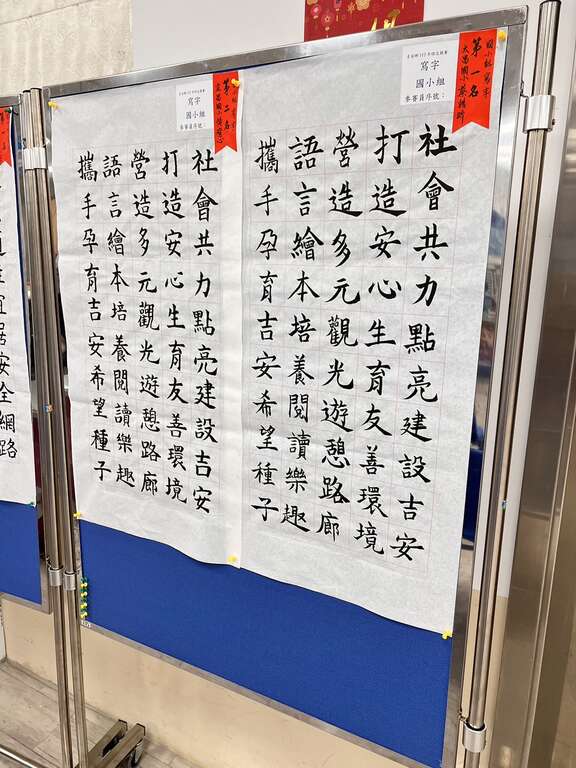 第一名
寫字
國小組
參賽員序號：
社會共力點亮建設吉安
打造安心生育友善環境
營造多元觀光遊憩路廊
語言繪本培養閱讀樂趣
攜手孕育吉安希望種子
第二名
寫字
國小組
參賽員序號：
社會共力點亮建設吉安
打造安心生育友善環境
營造多元觀光遊憩路廊
語言繪本培養閱讀樂趣
攜手孕育吉安希望種子
居安全網路